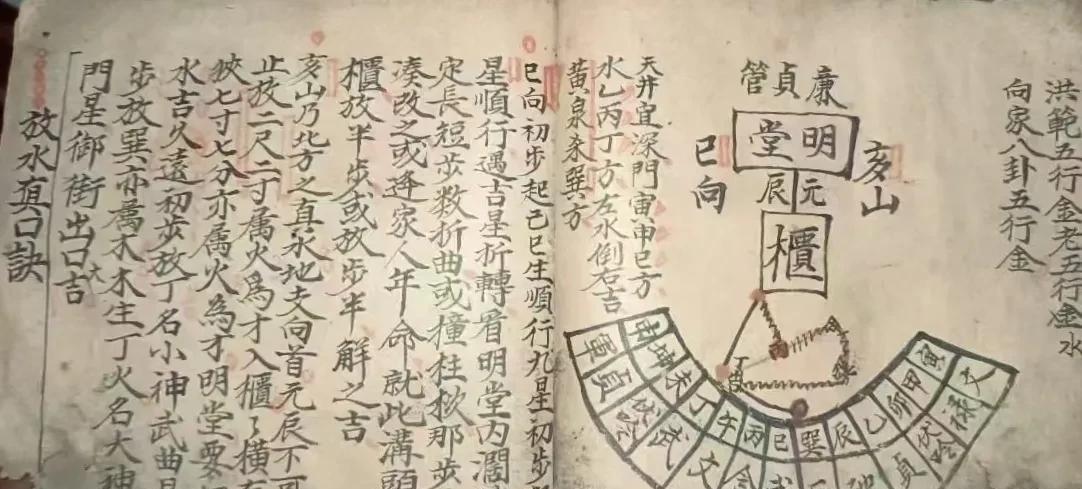 洪範五行金老五行金水
向家八卦五行金
廉貞管
明堂
亥山
巳向
元辰
櫃
寅甲卯乙辰巽巳丙午丁未坤申
文
祿
伏吟
貞
文
武
伏吟
貞
軍
天井宜深門宙申巳方
水乙丙丁方左水倒右吉
黃泉杀巽方
巳向初步起己巳生順行九星初步
星順行遇吉星折轉看明堂内濶
定長短步数折曲或撞柱
那步
湊改之或逢家人年命就此溝頭
櫃放半步或放步半解之吉
亥山乃北方之真水地支向首元辰不可
止放二尺二寸属火爲才入櫃々横
狹七寸七分亦属火為才明堂要
水吉久遠初步放丁名小神武曲
步放巽亦属木木生丁火名大神
門星御街出口大吉
放水真口訣